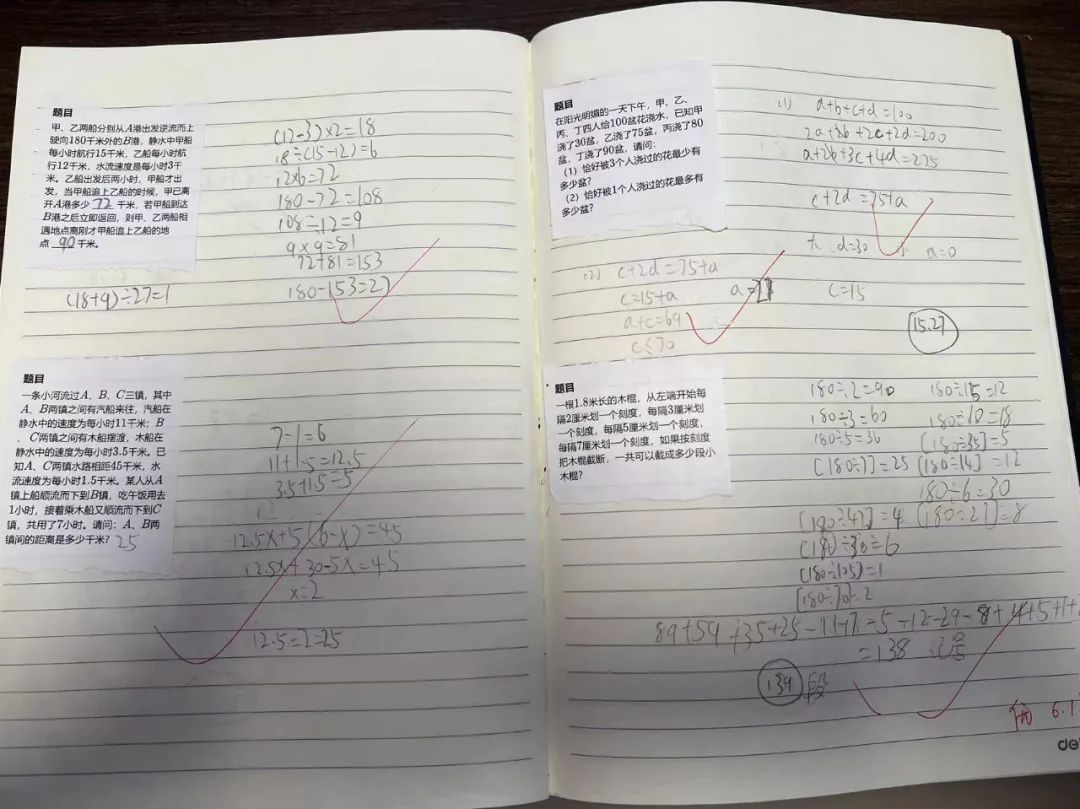 题目
甲、乙两船分别从A港出发逆流而上
驶向180千米外的B港，静水中甲船
每小时航行15千米，乙船每小时航
行12千米，水流速度是每小时3千
米。乙船出发后两小时，甲船才出
发，当甲船追上乙船的时候，甲已离
开A港多少 72 千米，若甲船到达
B港之后立即返回，则甲、乙两船相
遇地点离刚才甲船追上乙船的地
点 90 千米。
(12-3)×2=18
18÷(15-12)=6
12×6=72
180-72=108
108÷12=9
9×9=81
72+81=153
180-153=27
(18+9)÷27=1
题目
一条小河流过A、B、C三镇，其中
A、B两镇之间有汽船来往，汽船在
静水中的速度为每小时11千米；B
、C两镇之间有木船摆渡，木船在
静水中的速度为每小时3.5千米。已
知A、C两镇水路相距45千米，水
流速度为每小时1.5千米。某人从A
镇上船顺流而下到B镇，吃午饭用去
1小时，接着乘木船又顺流而下到C
镇，共用了7小时。请问：A、B两
镇间的距离是多少千米？25
7-1=6
11+1.5=12.5
3.5+1.5=5
12
12.5x+5(6-x)=45
12.5x+30-5x=45
x=2
12.5=2=25
题目
在阳光明媚的一天下午，甲、乙、
丙、丁四人给100盆花浇水，已知甲
浇了30盆，乙浇了75盆，丙浇了80
盆，丁浇了90盆，请问：
（1）恰好被3个人浇过的花最少有
多少盆？
（2）恰好被1个人浇过的花最多有
多少盆？
(1) a+b+c+d=100
2a+2b+2c+2d=200
a+2b+3c+4d=275
c+2d=75+a
d=30 a=0
c=15
(2) c+2d=75+a
c=15+a a=27
a+c=69
c≤70
15.27
题目
一根1.8米长的木棍，从左端开始每
隔2厘米划一个刻度，每隔3厘米划
一个刻度，每隔5厘米划一个刻度，
每隔7厘米划一个刻度，如果按刻度
把木棍截断，一共可以截成多少段小
木棍？
180÷2=90 180÷15=12
180÷3=60 180÷10=18
180÷5=36 [180÷35]=5
[180÷7]=25 [180÷14]=12
180÷6=30
[180÷42]=4 [180÷21]=8
[180÷30=6
[180÷105]=1
[180÷70]=2
89+59+35+25-11-17-5-12-29-8+4+5+1+
=138 记号
139 段
优 6.1
de